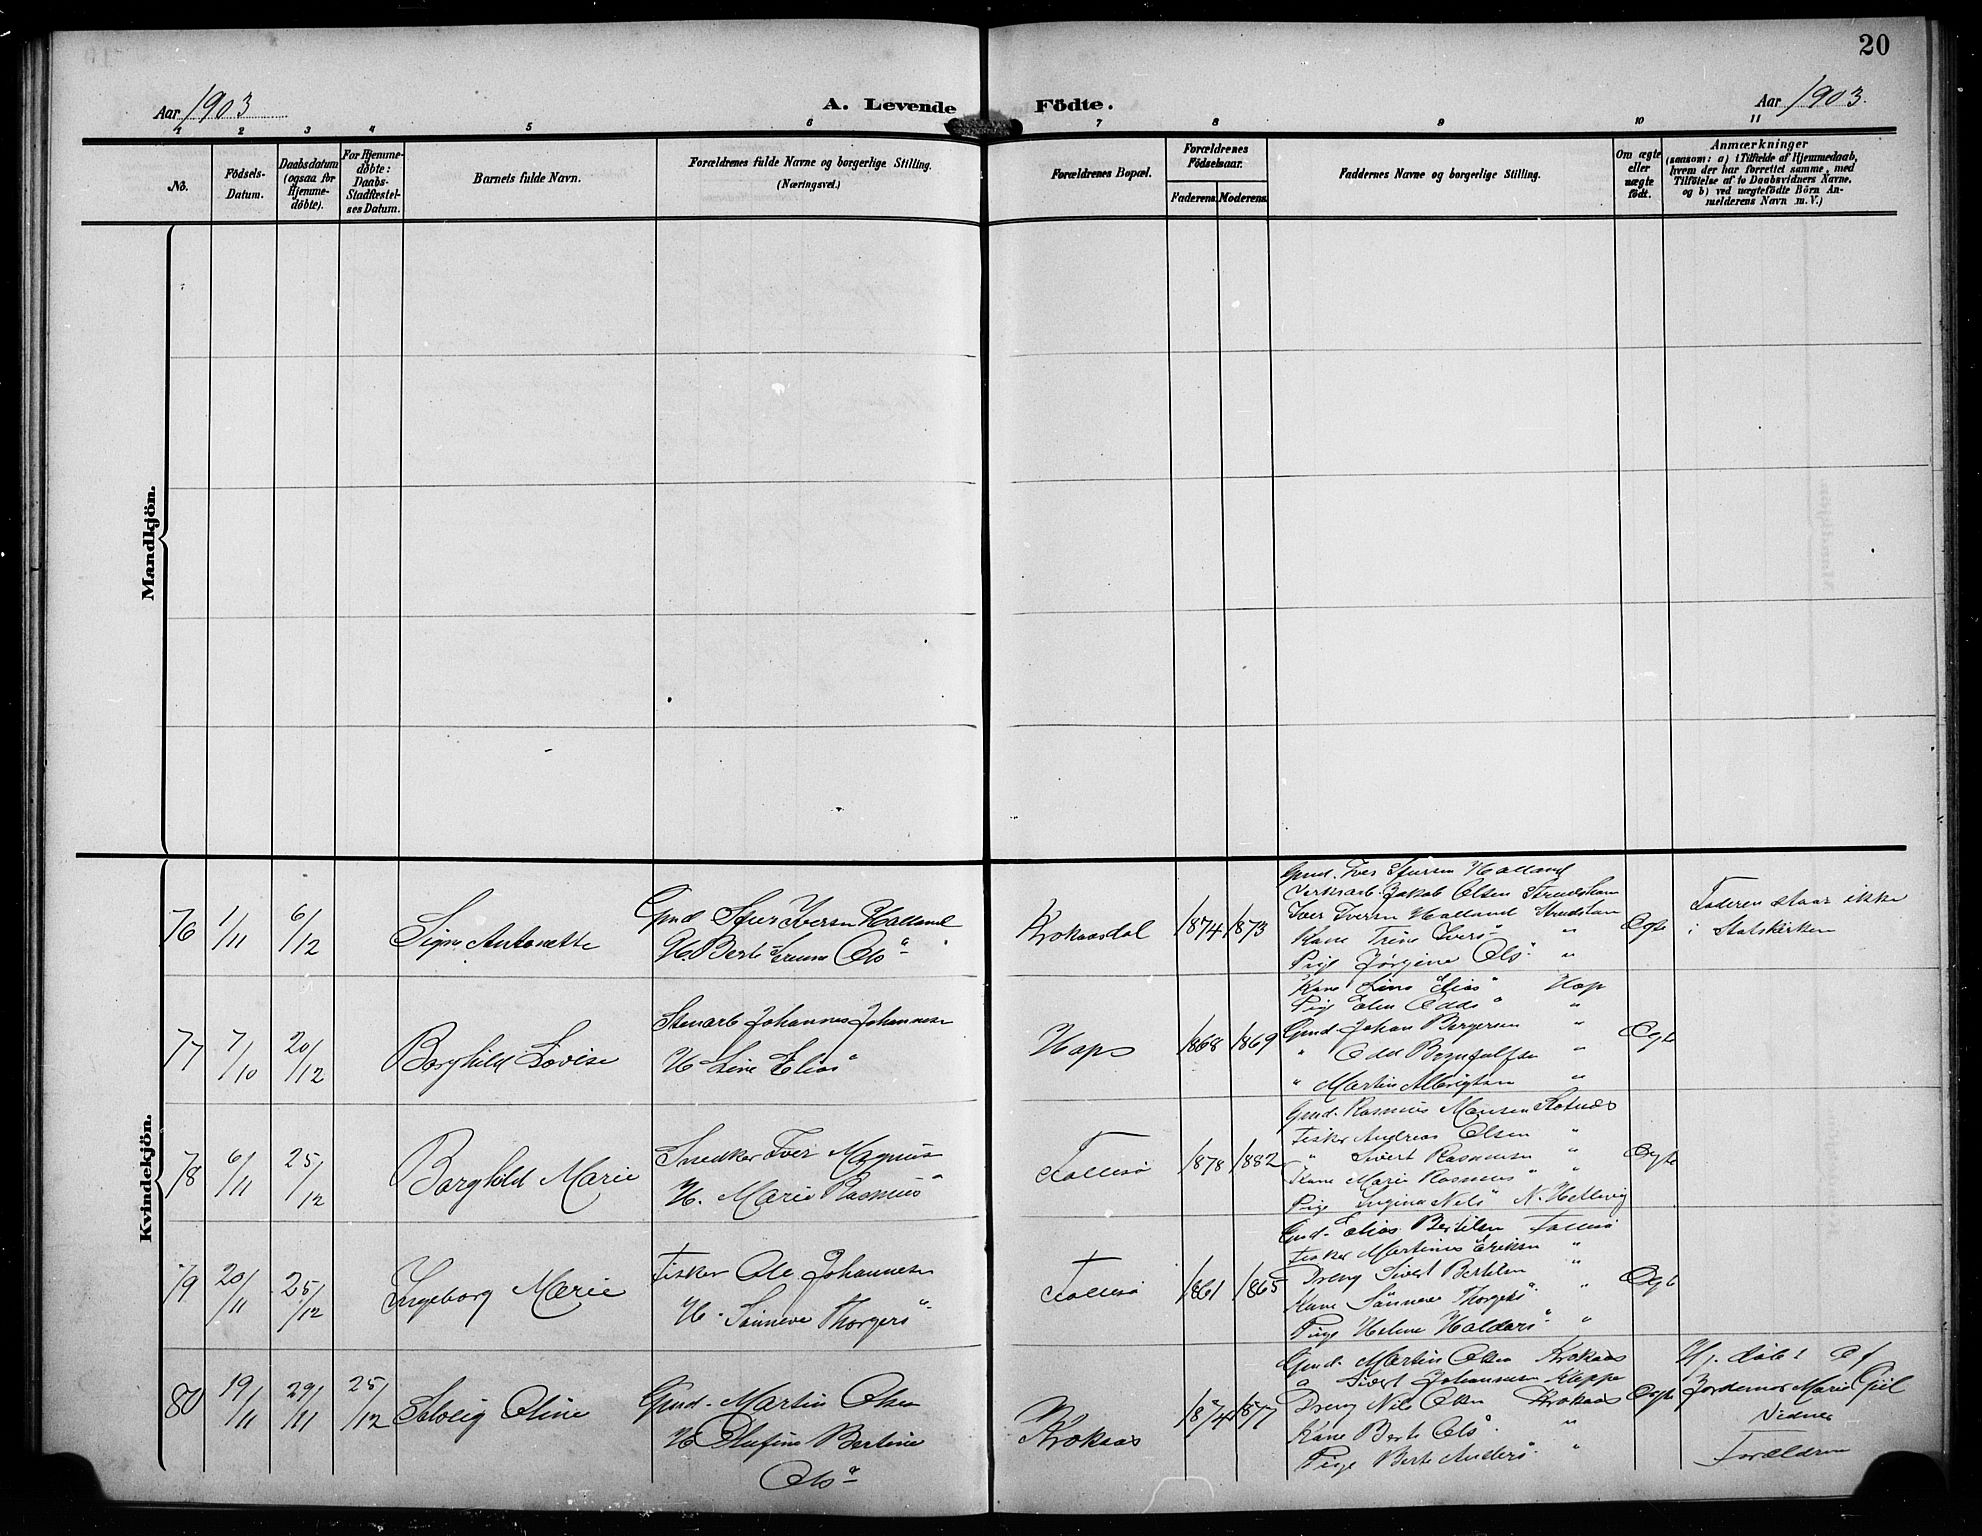 20
Aar 1903
A. Levende Födte.
Aar 1903.
1 2 3 4 5 6 7 8 9 10 11
No.
Födsels-Datum.
Daabsdatum (ogsaa for Hjemme-döbte).
For Hjemme-döbte: Daabs-Stadfæstel-ses Datum.
Barnets fulde Navn.
Forældrenes fulde Navne og borgerlige Stilling.
(Næringsvei.)
Forældrenes Bopæl.
Forældrenes Födselsaar.
Faderens. Moderens.
Faddernes Navne og borgerlige Stilling.
Om ægte eller uægte födt.
Anmærkninger
(saasom: a) i Tilfælde af Hjemmedaab,
hvem der har forrettet samme, med
Tilföielse af to Daabsvidners Navne,
og b) ved uægtefödte Börn An-
melderens Navn m. V.)
Mandkjön.
Kvindekjön.
76 1/11 6/12
Antonette
Gmd Iversen Halland
H Berte Ols"
Krokaasdal 1874 1873
Gmd. Iver Halland
Jakob Olsen
Iver Iversn Halland
Kone Trine Ivers" "
Pige Jørgine Ols" "
Ægte
Faderen staar ikke
i Statskirken
77 7/10 20/12
Borghild Lovise
Stenarb Johannes Johannesen
H Line Elias"
Hop 1868 1869
Kone Line Elias" Hop
Pig Elen Odds" "
Gmd Johan Bergersen "
" Odd "
" Martin "
Ægte
78 6/11 25/12
Borghild Marie
Snedker Iver Magnus
H. Marie Rasmus"
1878 1882
Gmd. Rasmus Monsen
Fisker Andreas Olsen "
" Sivert Rasmussen "
Kone Marie Rasmus" "
Pige Nels" N. Hellevig
Ægte
79 20/11 25/12
Ingeborg Marie
Fisker Ole Johannesen
H. Sønneve Thorgers"
1861 1865
Gmd. Elias Bertilsen
Fisker Martinus Eriksen "
Dreng Sivert Bertilsen "
Kone Sønneve Thorgers" "
Pige Helene Haldors" "
Ægte
80 19/11 29/11 25/12
Solveig Oline
Gmd. Martin Olsen
H Bertine
Ols"
Krokaas 1874 1877
Gmd. Martin Olsen Krokaas
" Sivert Johannesen Kleppe
Dreng Nils Olsen Krokaas
Kone Berte Ols" "
Pige Berte Anders" "
Ægte
Hj. døbt af
Jordemor Marie Giil
Vidner
Forældren